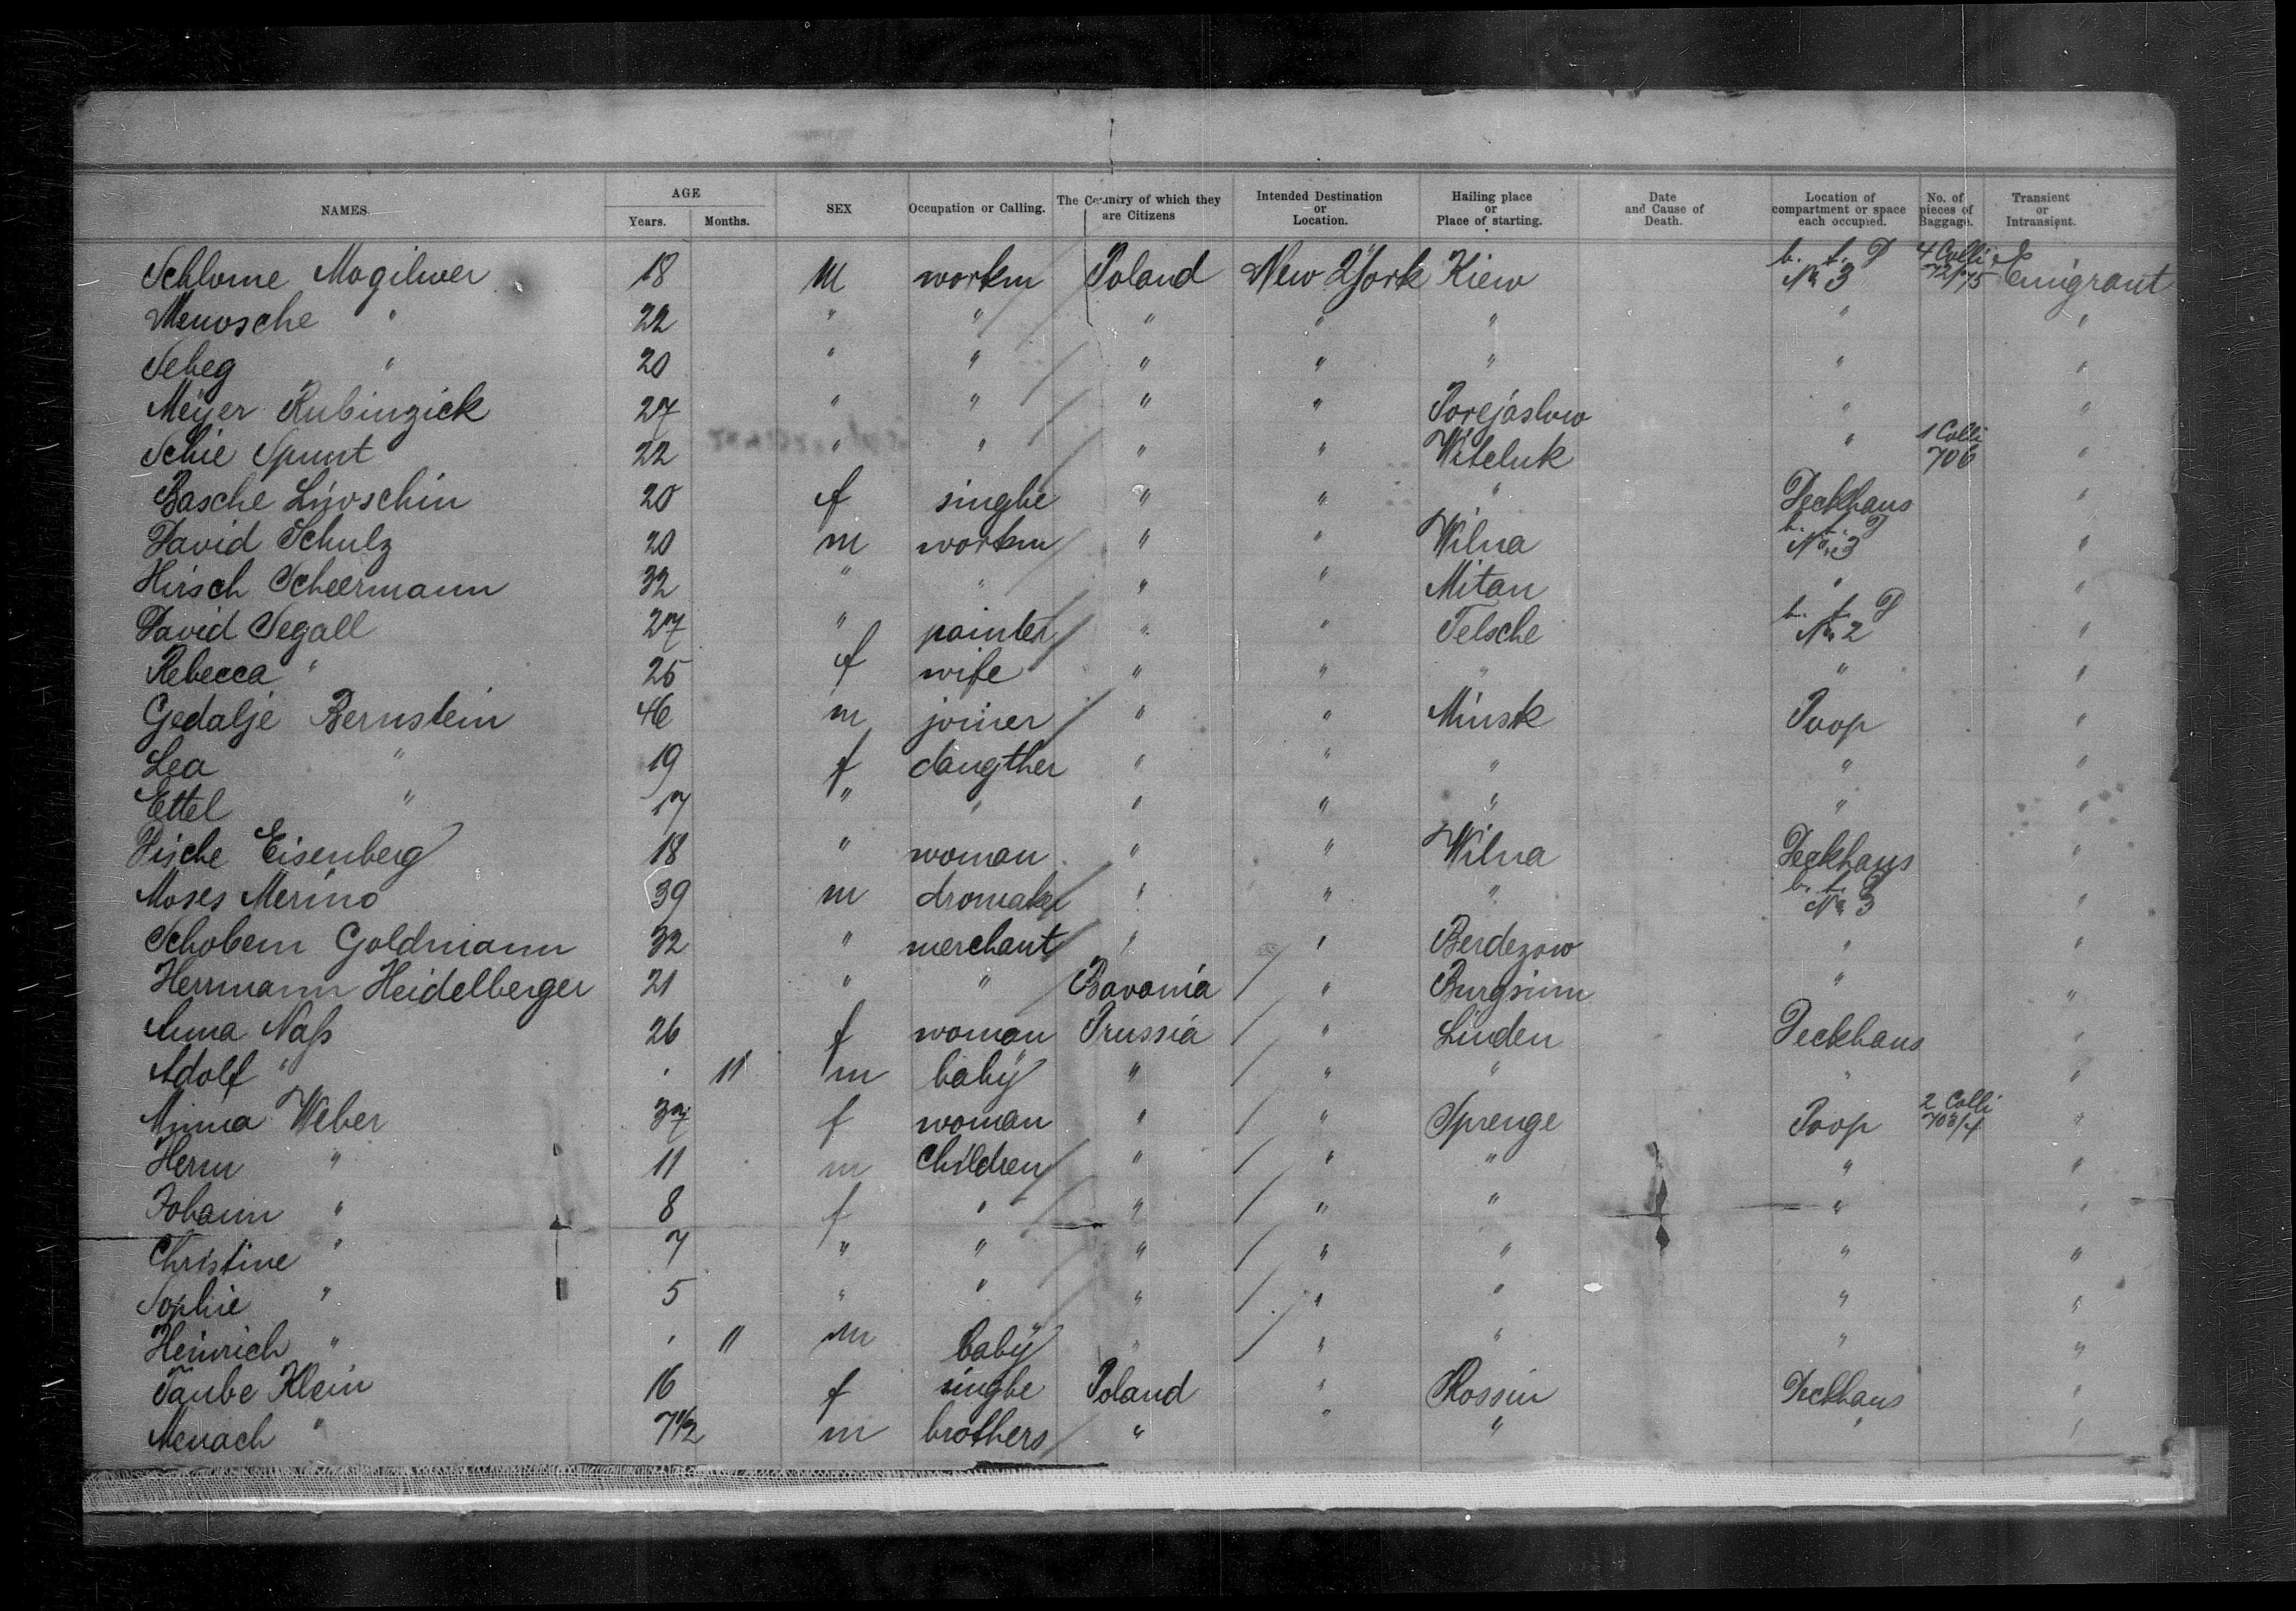 NAMES. AGE Years. Months. SEX Occupation or Calling. The Country of which they are Citizens Intended Destination or Location. Hailing place or Place of starting. Date and Cause of Death. Location of compartment or space each occupied. No. of pieces of Baggage. Transient or Intransient.
Schlome Mogilwer 18 m workm Poland New York Kiew b. f. D No 3 4 Colli 72/75 Emigrant
Menosche " 22 " " " " " " "
Sebeg " 20 " " " " " " "
Meÿer Rubinzick 27 " " " " Porejaslow " "
Schie Spunt 22 " " " " Witeluk " 1 Colli 706 "
Basche Liwoschin 20 f singhe " " " Deckhaus "
David Schulz 20 m workm " " Wilna b. f. D No 3 "
Hirsch Scheermann 32 " " " " Mitan " "
David Segall 27 " painter " " Telsche b. f. D No 2 "
Rebecca " 25 f wife " " " " "
Gedalje Bernstein 46 m joiner " " Minsk Poop "
Lea " 19 f daugther " " " " "
Ettel " 17 " " " " " " "
Pische Eisenberg 18 " woman " " Wilna Deckhaus "
Moses Merino 39 m dromaker " " " b. f. D No 3 "
Schobem Goldmann 32 " merchant " " Berdezow " "
Herrmann Heidelberger 21 " " Bavaria " Burgsinn " "
Anna Naß 26 f woman Prussia " Linden Deckhaus "
Adolf " 11 m baby " " " " "
Minna Weber 37 f woman " " Sprenge Poop 2 Colli 703/4 "
Herm " 11 m Children " " " " "
Johann " 8 f " " " " " "
Christine " 7 " " " " " " "
Sophie " 5 " " " " " " "
Heinrich " 11 m baby " " " " "
Taube Klein 16 f singhe Poland " Rossin Deckhaus "
Menach " 7 1/2 m brothers " " " " "